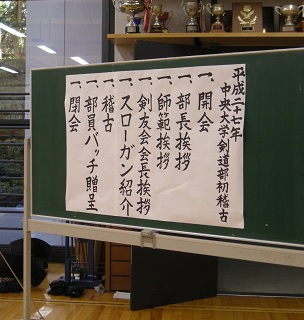 平成二十七年
中央大学剣道部初稽古
一、開会
一、部長挨拶
一、師範挨拶
一、剣友会会長挨拶
一、スローガン紹介
一、稽古
一、部員バッチ贈呈
一、閉会